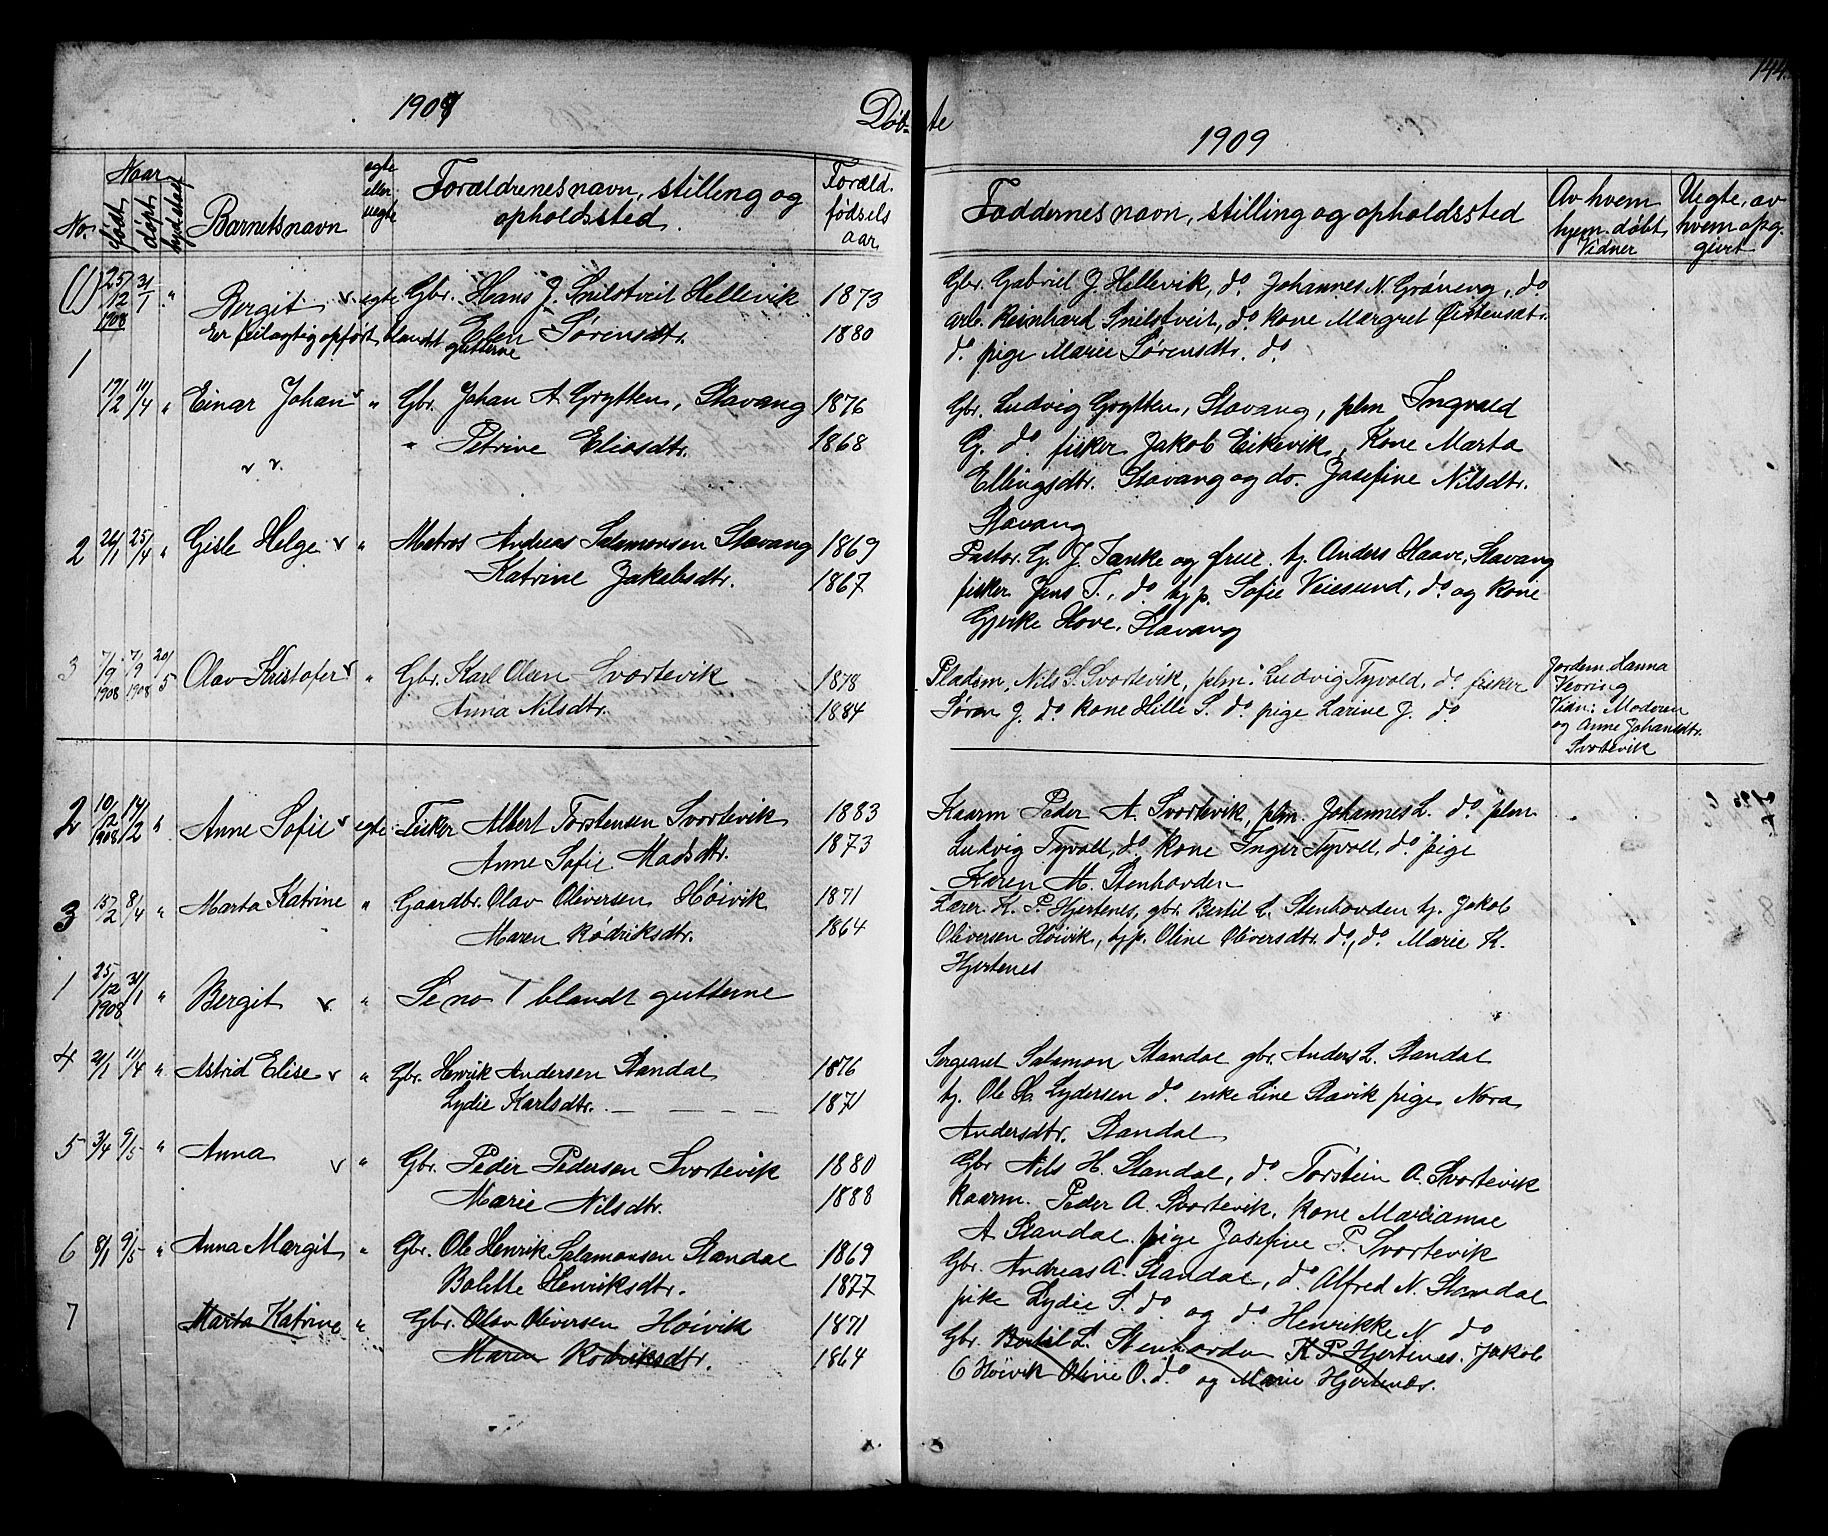 144.
1909 Døb- te 1909
No. Naar født døpt hjdøbt Barnets navn egte eller uegte Forældrenes navn, stilling og opholdssted. Foræld. fødsels aar
Faddernes navn, stilling og opholdssted Av hvem hjem. døbt Vidner Uegte, av hvem opg. givet
(1) 25/12 1908 31/1 " Bergit v egte Gbr. Hans J. Snilstveit Hellevik 1873
Er feilagtig opført blandt gutterne Elen Sørensdtr. 1880
Gbr. Gabriel J Hellevik, do. Johannes N. Grøneng, do.
arb. Reinhard Snilstveit, do. kone Margret Øistensdt.
do. pige Marie Sørensdtr. do
1 17/2 11/4 " Einar Johan v " Gbr. Johan A Grytten, Stavang 1876
" Petrine Eliasdtr. 1868
v v.
Gbr. Ludvig Grytten, Stavang, plm Ingvald
G. do. fisker Jakob Eikevik, Kone Marta
Ellingsdtr. Stavang og do. Josefine Nilsdtr.
Stavang
2 26/1 25/4 " Gisle Helge v " Matros Andreas Salamonsen Stavang 1869
Katrine Jakobsdtr. 1867
Pastor G. J. Tanke og frue. tj. Anders Haave, Stavang
fisker Jens T., do tjp. Sofie Veiesund, do. og kone
Gjerke Hove. Stavang
3 7/9 1908 7/9 1908 20/5 Olav Kristofer v " Gbr. Karl Olsen Svortevik 1878
Anna Nilsdtr. 1884
Pladsm. Nils S. Svortevik, plm. Ludvig Tyvold, do. fisker
Søren J. do. kone Hille S. do. pige Larine J. do
Jordem. Hanna
Vevring
Vidn: Moderen
og Anne Johansdtr.
Svortevik
2 10/12 1908 14/2 " Anne Sofie v egte Fisker Albert Torstensen Svortevik 1883
Anne Sofie Madsdtr. 1873
Kaarm Peder A. Svortevik, plm. Johannes L. do. plm.
Ludvig Tyvoll, do. kone Inger Tyvoll, do. pige
Karen M. Stenhovden
3 15/2 8/4 " Marta Katrine " Gaardbr. Olav Oliversen Høivik 1871
Maren Rødriksdtr. 1864
Lærer K. P. Hjertenes, gbr. Bertil L. Stenhovden tj. Jakob
Oliversen Høivik, tjp. Oline Oliversdtr. do, do. Marie K.
Hjertenes
1 25/12 1908 31/1 " Bergit v. " Se no 1 blandt gutterne
4 21/1 11/4 " Astrid Elise v " Gbr. Henrik Andersen Standal 1876
Lydie Karlsdtr. — — — 1871
Sergeant Salamon Standal gbr. Anders L. Standal
tj. Ole Lydersen do. enke Line Slavik pige Nora
Andersdtr. Standal
5 3/4 9/5 " Anna v " Gbr. Peder Pedersen Svortevik 1880
Marie Nilsdtr. 1888
Gbr Nils H. Standal, do. Torstein A. Svortevik
Kaarm. Peder A. Svortevik, kone Marianne
A. Standal pige Josefine P. Svortevik
6 8/1 9/5 " Anna Margit " Gbr. Ole Henrik Salamonsen Standal 1869
Bolette Henriksdtr. 1877
Gbr. Andreas A. Standal, do. Alfred N. Standal
pike Lydie S. do og do. Henrikke N do
7 Marta Katrine " Gbr. Olav Oliversen Høivik 1871
Maren Rødriksdtr. 1864
Gbr. Bertil L. Stenhovden K P. Hjertenes. Jakob
O Høivik Oline O. do. og Marie Hjertenæs.